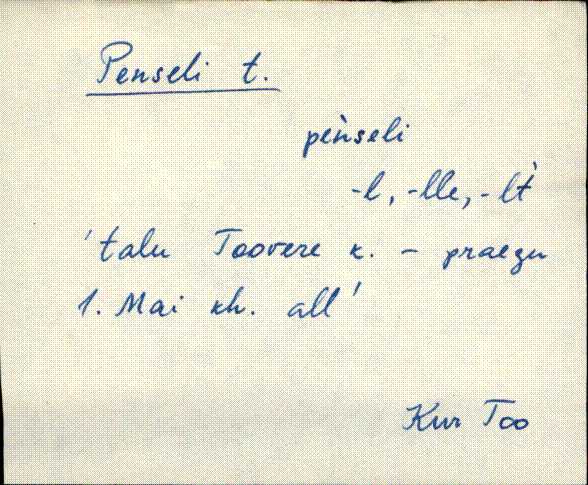 Penseli t.
pènseli
-l, -lle, -lt̀
'talu Toovere k. - praegu
1. Mai kh. all'
Kur Too